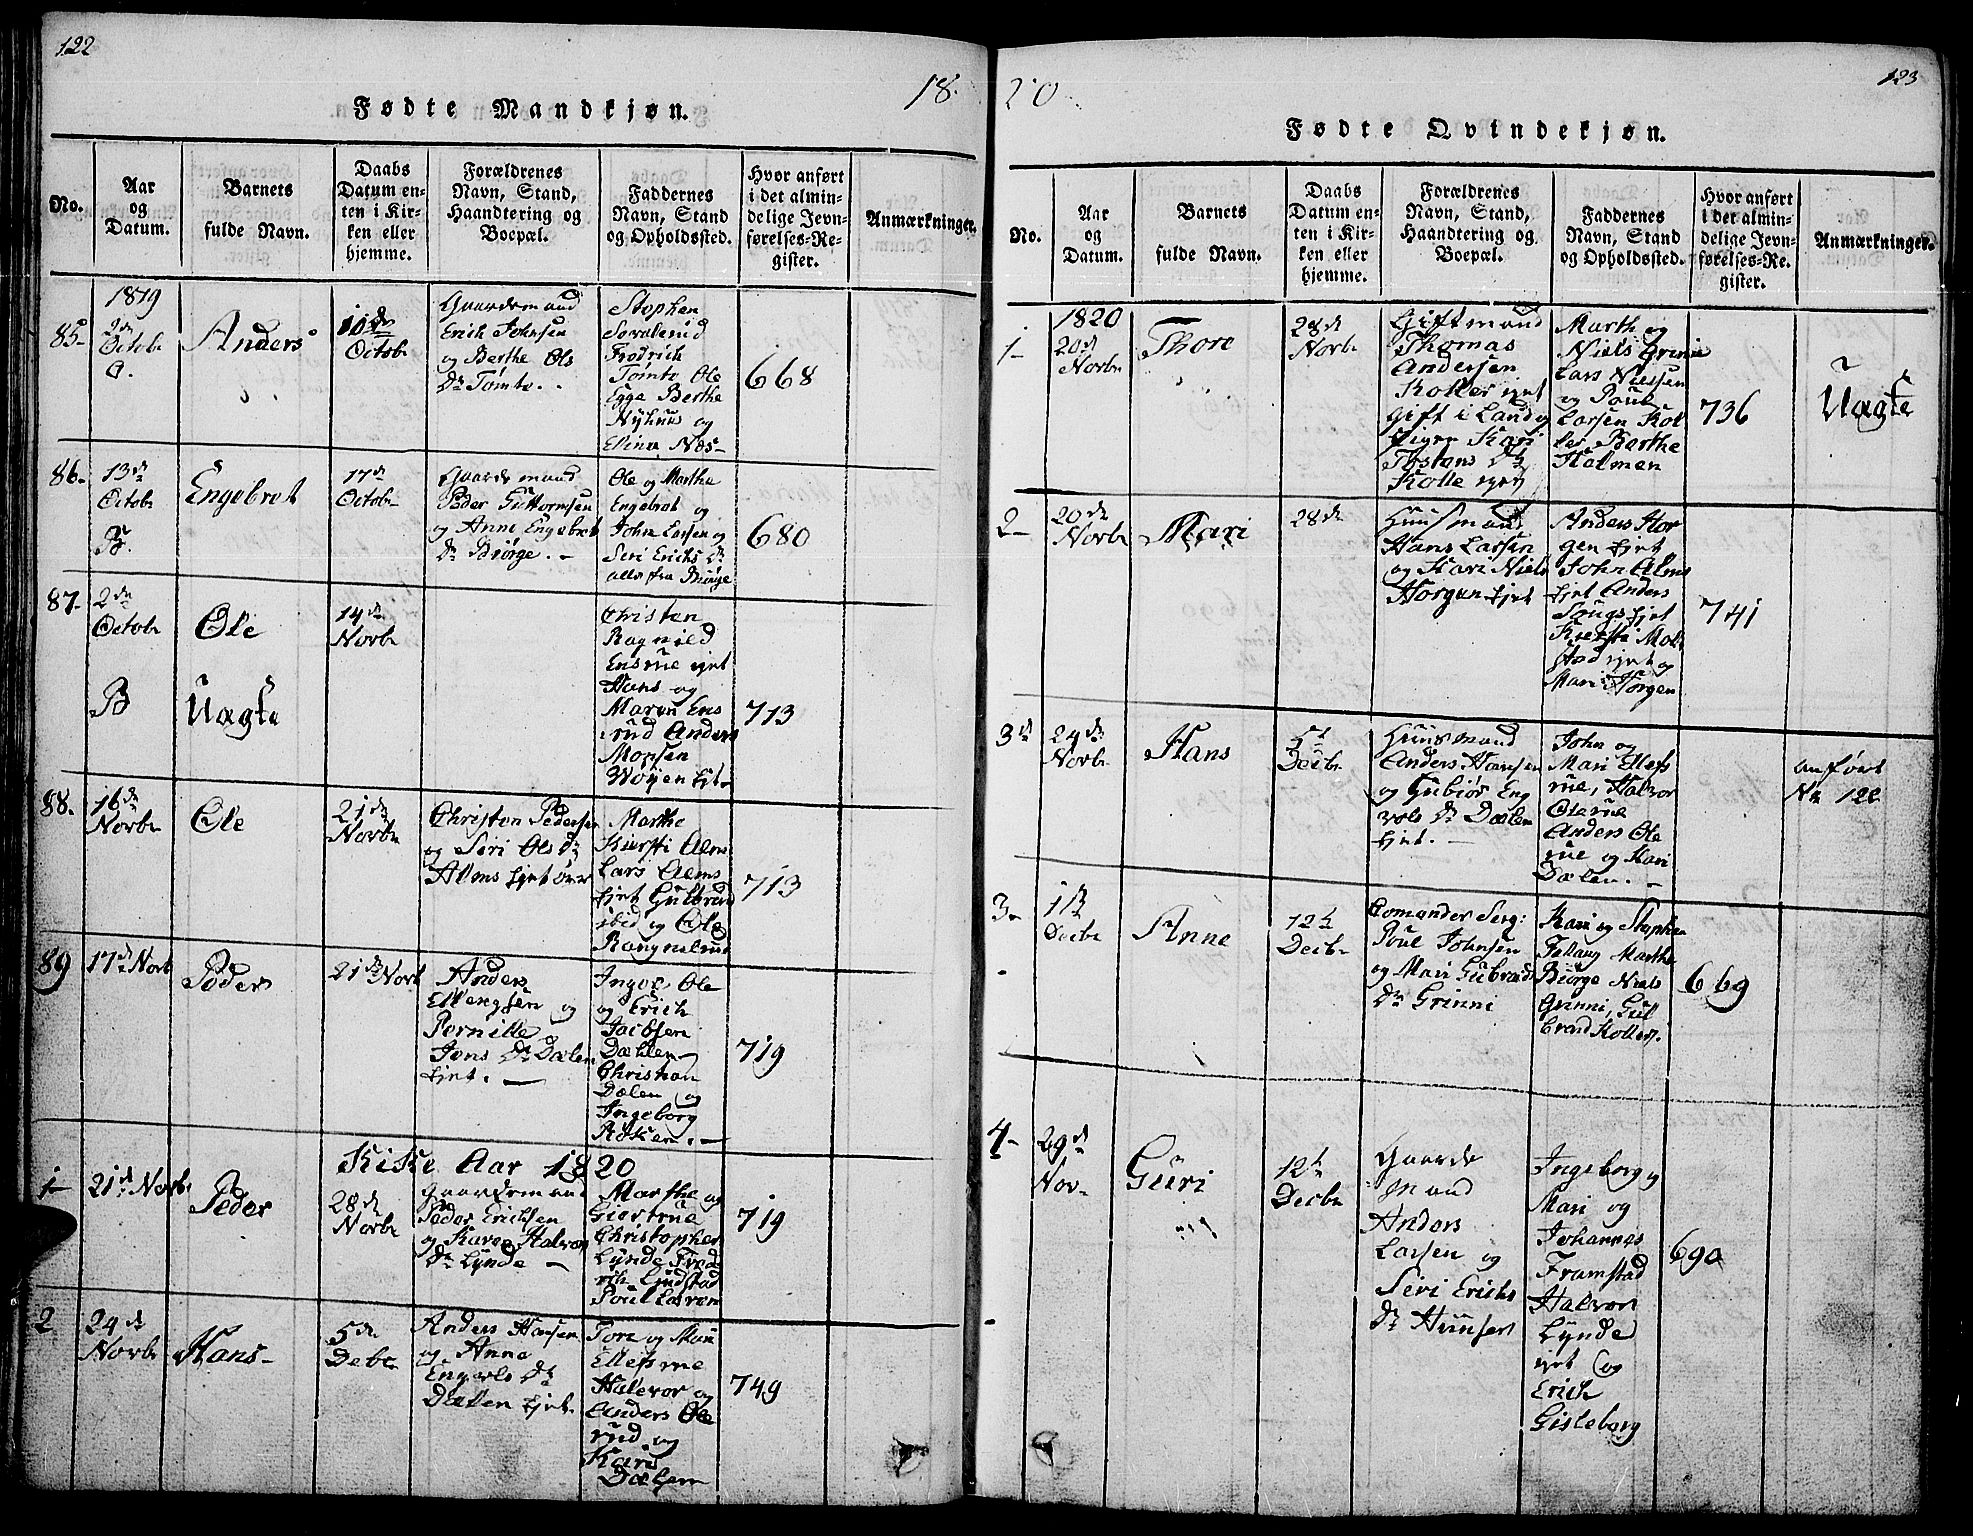 122
18
Fødte Mandkjøn.
No.
Aar
og
Datum.
Barnets
fulde Navn.
Daabs
Datum en-
ten i Kir-
ken eller
hjemme.
Forældrenes
Navn, Stand,
Haandtering og
Boepæl.
Faddernes
Navn, Stand
og Opholdssted.
Hvor anført
i det almin-
delige Jevn-
førelses-Re-
gister.
Anmærkninger.
85-
1819
October
Anders
Octobr
Gaardemand
Erich Johnsen
og Berthe Ols
Dr Tømte.
Stephen
Fredrich
Tømte Ole
Egge Berthe
Nyhuus og
668
86-
13de
Octobr
B.
Engebret
17de
Octobr
Gaardemand
Peder Guttormsen
og Anne Engebret
Dr Biørge. -
Ole og Marthe
Engebret og
John Larsen og
Seri Erichs Dr
alle fra Biørge
680
87-
2de
Octobr
B
Ole
Uægte
14de
Novbr
Christen
Ragnild
Ensrue ejet
Hans og
Maren Ens
rud Anders
Monsen
713
88-
16de
Novbr
Ole
21de
Novbr
Christen Pedersen
og Siri Ols Dr
Alms Ejet
Marthe
Kiersti Alms
Lars Alms
Ejet Gulbrand
ibid og Ole
713
89
17de Novb
Peder
21de Novb
Anders
og
Pernille
Jens Dr Dælen
Ejet. -
Inger Ole
og Erich
Jacobsen
Dælen
Christian
Dælen og
Ingeborg
719
Kirke Aar 1820
1-
21de Novb
Peder
28de
Novbr
Gaardemand
Peder Erichsen
og Karen Halvor
Dr Lynde -
Marthe og
Giertrue
Christopher
Lynde Fred
rich
Poul
719
2
24de
Novbr
Hans-
5de
Debr
Anders Hansen
og Anne
Dr
Dælen Ejet.
Tore og Mari
Ellefsrue
Halvor og
Anders Ole
rud og
Kari
Dælen
749
20
123
Fødte Qvindekjøn.
No.
Aar
og
Datum.
Barnets
fulde Navn.
Daabs
Datum en-
ten i Kir-
ken eller
hjemme.
Forældrenes
Navn, Stand,
Haandtering og
Boepæl.
Faddernes
Navn, Stand
og Opholdssted.
Hvor anført
i det almin-
delige Jevn-
førelses-Re-
gister.
Anmærkninger.
1-
1820
20de
Novbr
Thore
28de
Novbr
Giftmand
Thomas
Andersen
Koller ejet
Gift i Land og
Pigen Kari
Dr
Kolle ejet
Marthe og
Niels Grinni
Lars Nielsen
og Poul
Larsen Kol
ler Berthe
Halmen
736
Uægte
2-
20de
Novbr
Mari
28de
Huusmand
Hans Larsen
og Kari Niels
Horgen Ejet
Anders Hor
gen Ejet
John Alms
Ejet Anders
Ejet
Kiersti
ejet og
Mari Horgen
741
3de
24de
Novbr
Hans
5t
Decbr
Huusmand
Anders Hansen
og Gubiør Eng
vols Dr Dælen
Ejet. -
John og
Mari Ellefs
rue, Halvor
Olerue
Anders Ole
rue og Kari
Dælen. -
anført
No 122
3-
1te
Decbr
Anne
12te
Decbr
Comander Serg:
Poul Johnsen
og Mari Gubrands
Dr Grinni
Kari og Stephen
Fallang Marthe
Biørge Niels
Grinni, Gul
brand Koller.
669
4-
29de
Nov-
Guri
12te
Decbr
Gaarde
mand
Anders
Larsen og
Seri Erichs
Dr Hunser
Ingeborg og
Mari og
Johannes
Framstad
Halvor
Lynde
ejet og
Erich
Gisleborg
690